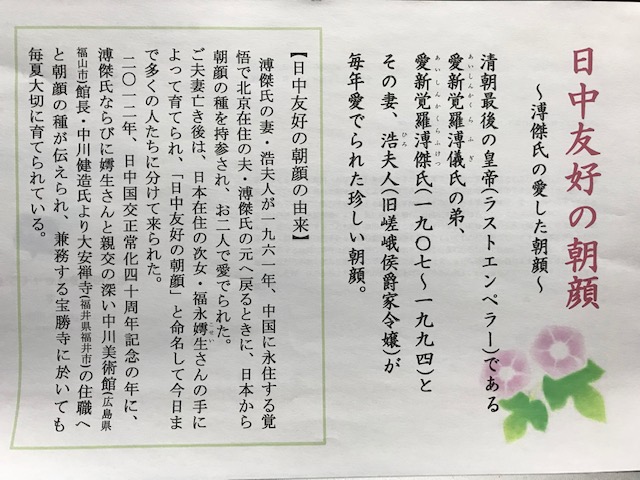 日中友好の朝顔
～溥傑氏の愛した朝顔～
清朝最後の皇帝(ラストエンペラー)である
愛新覚羅溥儀氏の弟、
あいしんかくらふぎ
愛新覚羅溥傑氏(一九〇七～一九九四)と
あいしんかくらふけつ
その妻、浩夫人(旧嵯峨侯爵家令嬢)が
ひろ
毎年愛でられた珍しい朝顔。
【日中友好の朝顔の由来】
溥傑氏の妻・浩夫人が一九六一年、中国に永住する覚
悟で北京在住の夫・溥傑氏の元へ戻るときに、日本から
朝顔の種を持参され、お二人で愛でられた。
ご夫妻亡き後は、日本在住の次女・福永嫮生さんの手に
こせい
よって育てられ、「日中友好の朝顔」と命名して今日ま
で多くの人たちに分けて来られた。
二〇一二年、日中国交正常化四十周年記念の年に、
溥傑氏ならびに嫮生さんと親交の深い中川美術館(広島県
福山市)館長・中川健造氏より大安禅寺(福井県福井市)の住職へ
と朝顔の種が伝えられ、兼務する宝勝寺に於いても
毎夏大切に育てられている。